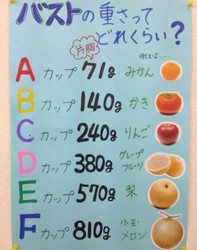 バストの重さって
どれくらい?
片胸
例えば…
Aカップ 71g みかん
Bカップ 140g かき
Cカップ 240g りんご
Dカップ 380g グレープフルーツ
Eカップ 570g 梨
Fカップ 810g 小玉メロン